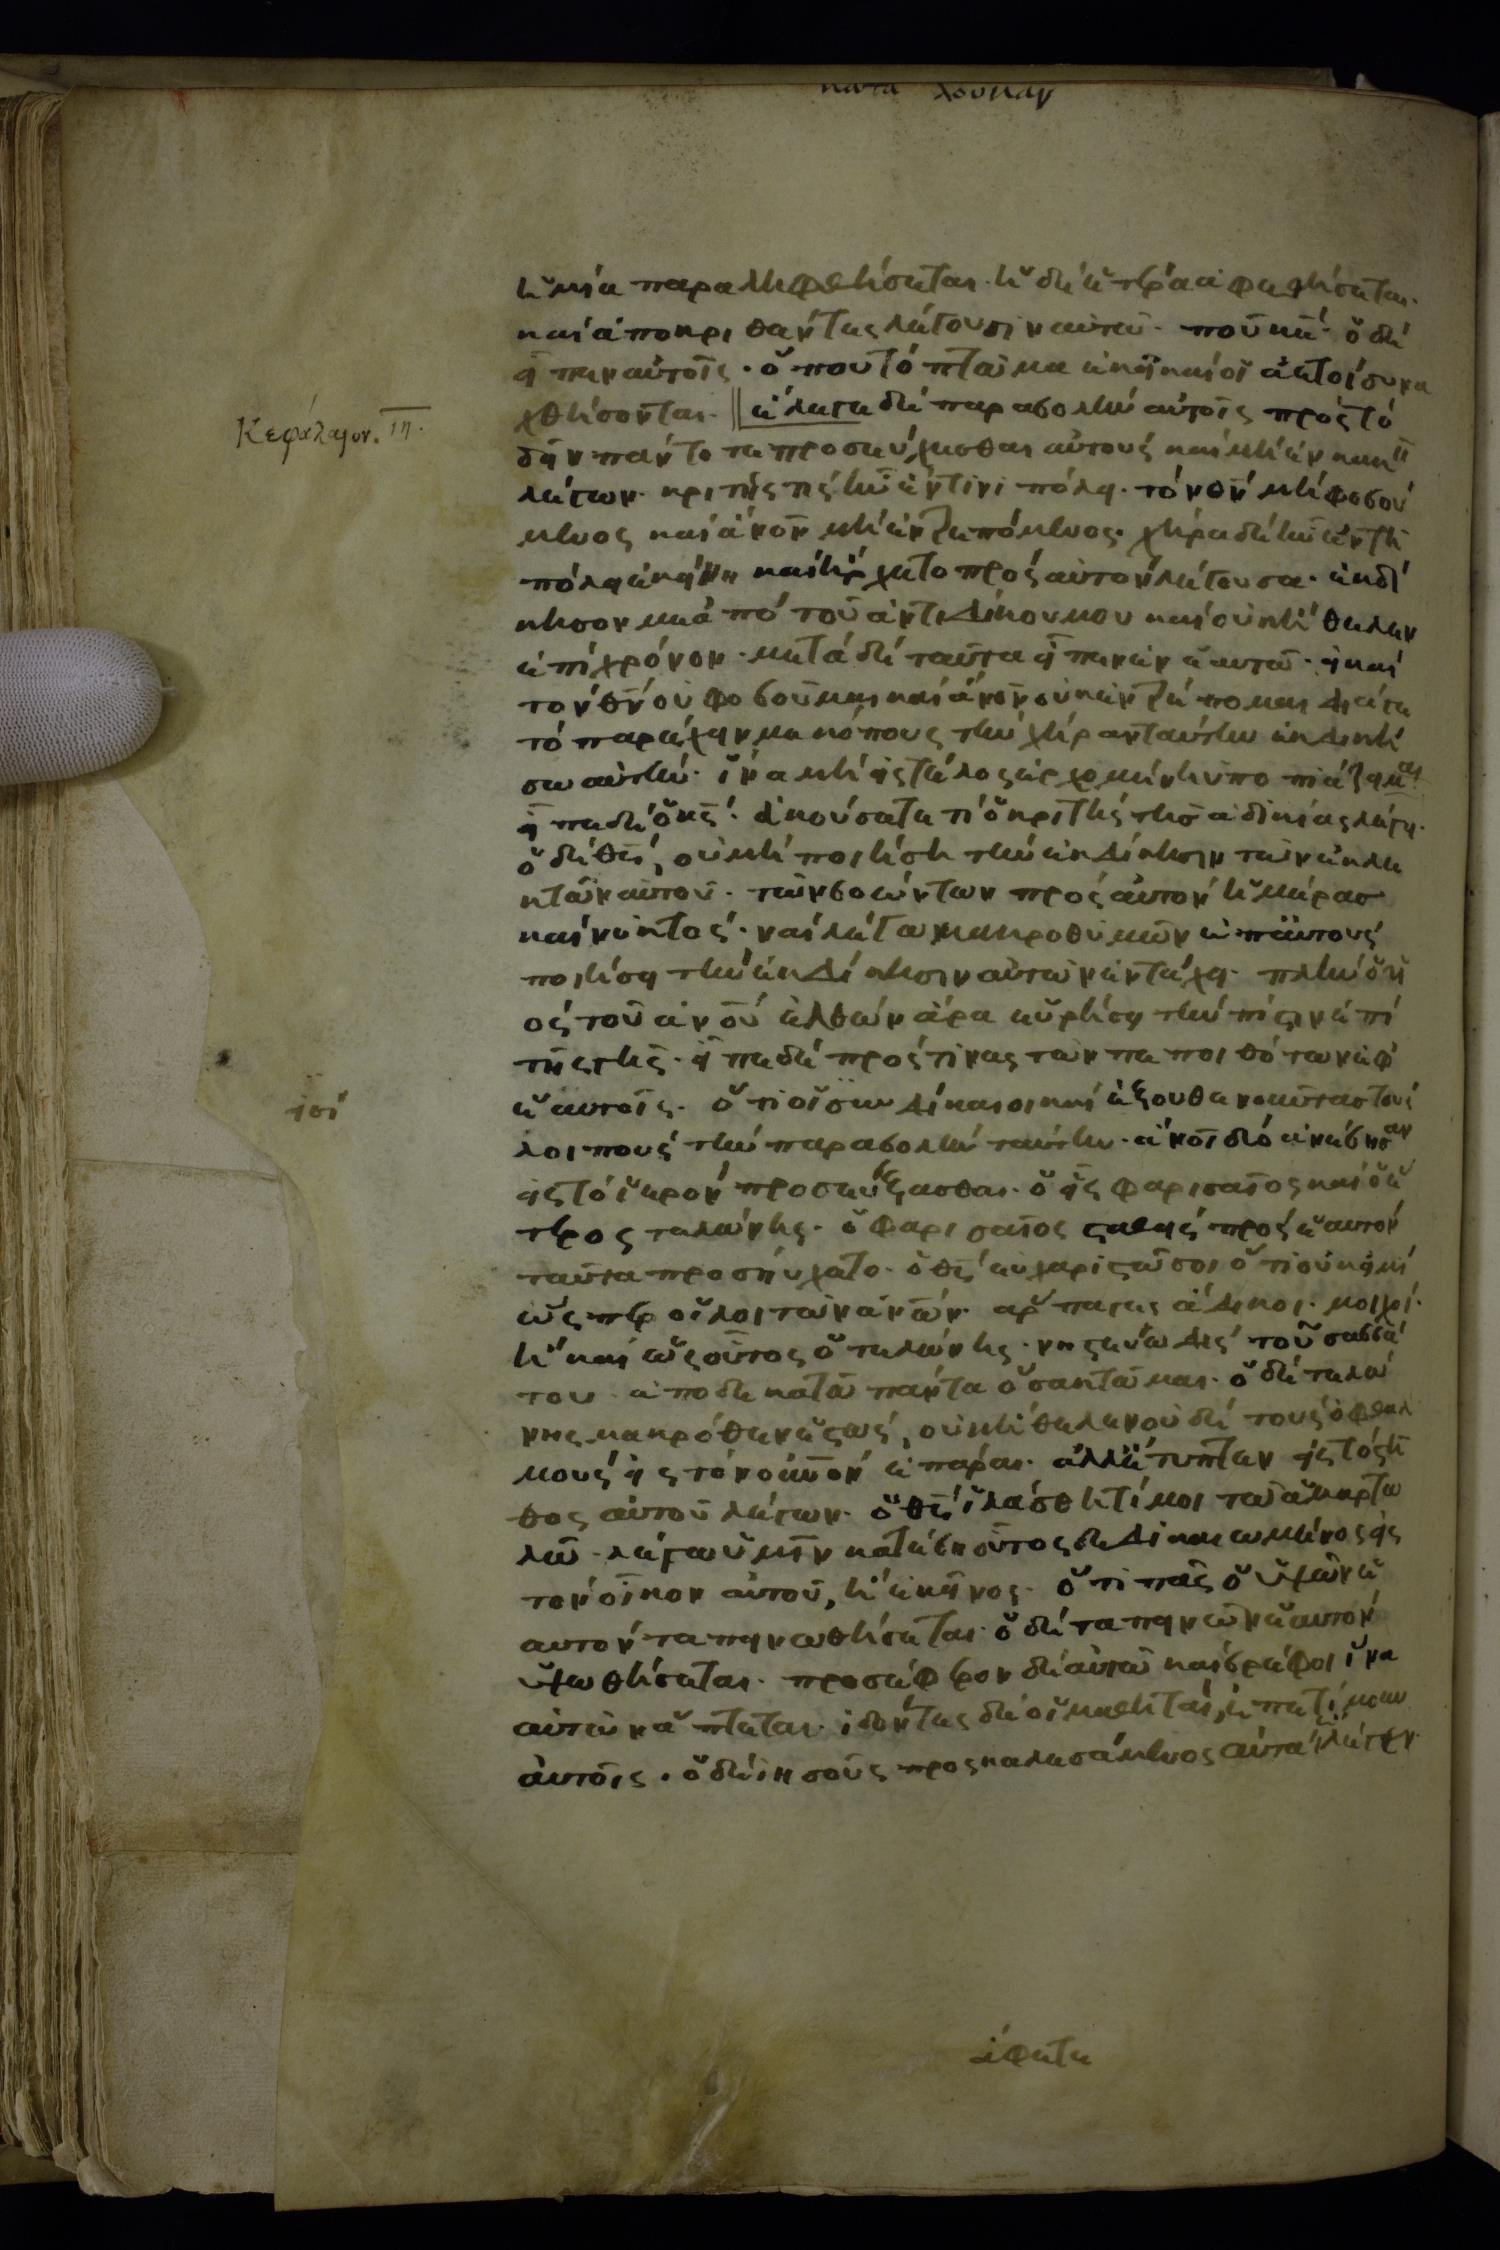 κατα λουκαν
ἡ μία παραληφθήσεται· ἡ δὲ ἑτέρα ἀφεθήσεται·
καὶ ἀποκριθέντες λέγουσιν αὐτῶ· ποῦ κε̅· ὁ δὲ
εἶπεν αὐτοῖς· ὅπου τὸ πτῶμα ἐκεῖ καὶ οἱ ἀετοὶ συνα
χθήσονται· ἔλεγε δὲ παραβολὴν αὐτοῖς πρὸς τὸ
Κεφάλαιον. ιη.
δεῖν πάντοτε προσεύχεσθαι αὐτοὺς καὶ μὴ ἐνκακεῖν
λέγων· κριτής τις ἦν ἔν τινι πόλει· τὸν θν̅ μὴ φοβού
μενος καὶ ἄνον̅ μὴ ἐντρεπόμενος· χήρα δὲ ἦν ἐν τῆ
πόλει ἐκείνη καὶ ἤρχετο πρὸς αὐτὸν λέγουσα· ἐκδί
κησον με ἀπὸ τοῦ ἀντιδίκου μου καὶ οὐκ ἤθελεν
ἐπὶ χρόνον· μετὰ δὲ ταῦτα εἶπεν ἐν ἑαυτῶ· εἰ καὶ
τὸν θν̅ οὐ φοβοῦμαι καὶ ἄνον̅ οὐκ ἐντρέπομαι διά γε
τὸ παρέχειν με κόπους τὴν χήραν ταύτην ἐκδική
σω αὐτήν· ἵνα μὴ εἰς τέλος ἐρχομένη ὑποπιάζει με·
εἶπε δὲ ὁ κς̅· ἀκούσατε τί ὁ κριτὴς τῆς ἀδικίας λέγει·
ὁ δὲ θς̅, οὐ μὴ ποιήση τὴν ἐκδίκησιν τῶν ἐκλε
κτῶν αὐτοῦ· τῶν βοώντων πρὸς αὐτὸν ἡμέρας
καὶ νυκτός· ναὶ λέγω μακροθυμῶν ἐπ' αὐτούς
ποιήσει τὴν ἐκδίκησιν αὐτῶν ἐν τάχει· πλὴν ὁ υἱ
ὸς τοῦ ἀνοῦ̅ ἐλθὼν ἆρα εὑρήσει τὴν πίστιν ἐπὶ
τῆς γῆς· εἶπε δὲ πρός τινας τῶν πεποιθότων ἐφ
ἑαυτοῖς· ὅτι εἰσὶν δίκαιοι καὶ ἐξουθενοῦντας τοὺς
λοιποὺς τὴν παραβολὴν ταύτην· ἄνοι̅ δύο ἀνέβησαν
εἰς τὸ ἱερὸν προσεύξασθαι· ὁ εἷς φαρισαῖος καὶ ὁ ἕ
τερος τελώνης· ὁ φαρισαῖος σταθεὶς πρὸς ἑαυτὸν
ταῦτα προσηύχετο· ὁ θς̅ εὐχαριστῶ σοι ὅτι οὐκ εἰμὶ
ὥσπερ οἱ λοιποὶ τῶν ἀνων̅· ἅρπαγες ἄδικοι· μοιχοί·
ἢ καὶ ὡς οὗτος ὁ τελώνης· νηστεύω δὶς τοῦ σαββά
του· ἀποδεκατῶ πάντα ὅσα κτῶμαι· ὁ δὲ τελώ
νης μακρόθεν ἑστώς, οὐκ ἤθελεν οὐδὲ τοὺς ὀφθαλ
μοὺς εἰς τὸν οὐνον̅ ἐπᾶραι· ἀλλ' ἔτυπτεν εἰς τὸ στῆ
θος αὐτοῦ λέγων· ὁ θς̅ ἱλάσθητί μοι τῶ ἁμαρτω
λῶ· λέγω ὑμῖν κατέβη οὗτος δεδικαιωμένος εἰς
τὸν οἶκον αὐτοῦ, ἢ ἐκεῖνος· ὅτι πᾶς ὁ ὑψῶν ἑ
αυτὸν ταπεινωθήσεται· ὁ δὲ ταπεινῶν ἑαυτὸν
ὑψωθήσεται· προσέφερον δὲ αὐτῶ καὶ βρέφοι ἵνα
αὐτῶν ἅπτεται· ἰδόντες δὲ οἱ μαθηταί, ἐπετίμουν
αὐτοῖς· ὁ δὲ ἰησοῦς προσκαλεσάμενος αὐτὰ ἔλεγεν·
ἄφετε